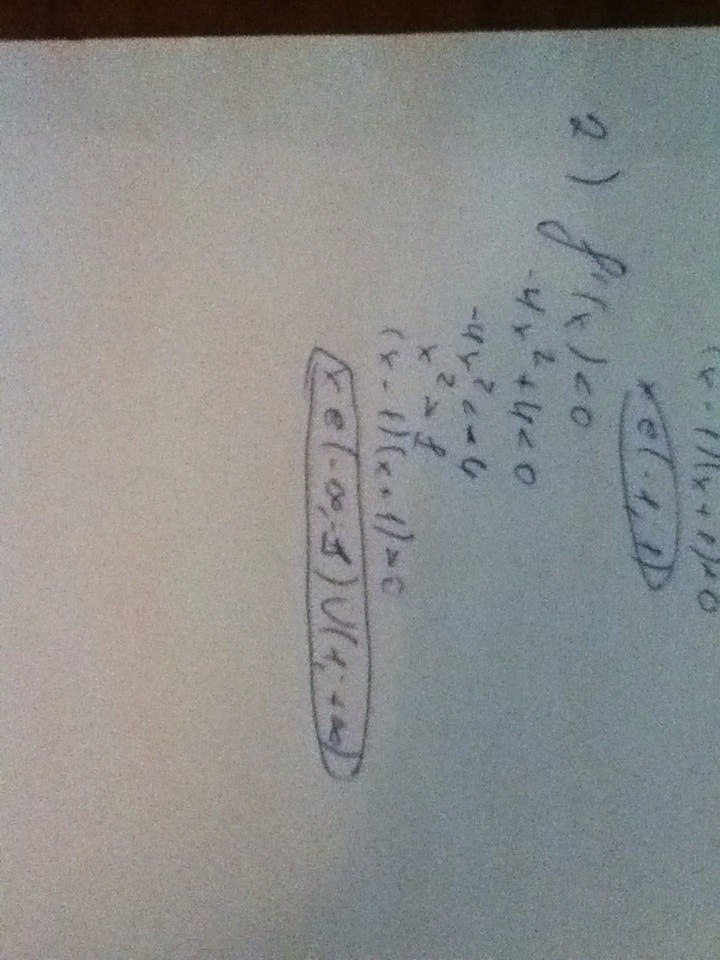 (x-1)(x+1)<0
x∈(-1,1)
2) f'(x)<0
-4x²+4<0
-4x²<-4
x²>1
(x-1)(x+1)>0
x∈(-∞;-1)∪(1;+∞)